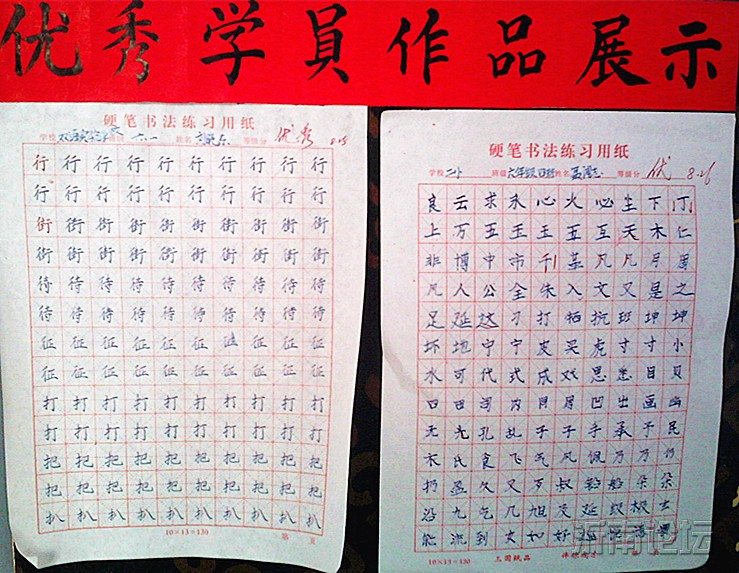 优秀学員作品展示
硬笔书法练习用纸
学校 班级 六.一 姓名 等级分 优秀 8.25
行行行行行行行行行行
行行行行行行行行行行
街街街街街街街街街街
街街街街街街街街街街
待待待待待待待待待待
待待待待待待待待待待
征征征征征征征征征征
征征征征征征征征征征
打打打打打打打打打打
打打打打打打打打打打
把把把把把把把把把把
把把把把把把把把把把
扒扒扒扒扒扒扒扒扒扒
10×13=130 第 页
硬笔书法练习用纸
学校 二小 班级 六年级 姓名 孟 等级分 优 8.26
良云求永心火必生下门
上万五王玉五互天木仁
非博中市千革凡凡月周
凡人公全朱入文又是之
足延这刁打栖抗班坤坤
坏地宁宁皮买虎寸寸小
水可代式成双思悉目贝
口田司为月居凹出画幽
无光孔乱子子手承予民
木氏食飞气风佩乃乃仍
扔盈久又万叔铅船朵朵
沿九乞几旭及延级极玄
能流到女如好
10×13=130 三圆纸品
浙南论坛